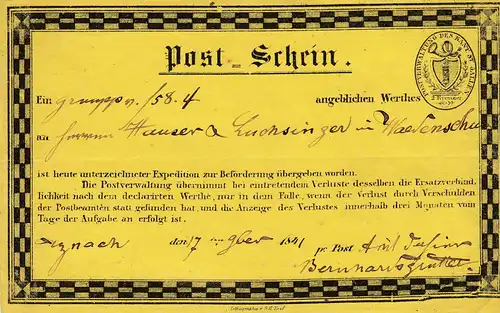 Post-Schein.
POSTVERWALTUNG DES KANT. ST. GALLEN
2 Kreuzer
Ein Gruppo v. f 58.4 angeblichen Werthes
an Herren Hauser & Luchsinger in Waedenschw
ist heute unterzeichneter Expedition zur Beförderung übergeben worden.
Die Postverwaltung übernimmt bei eintretendem Verluste desselben die Ersatzverbind
lichkeit nach dem declarirten Werthe, nur in dem Falle, wenn der Verlust durch Verschulden
der Postbeamten statt gefunden hat, und die Anzeige des Verlustes innerhalb drei Monaten vom
Tage der Aufgabe an erfolgt ist.
Uznach den 17 9ber 1841 pr. Post